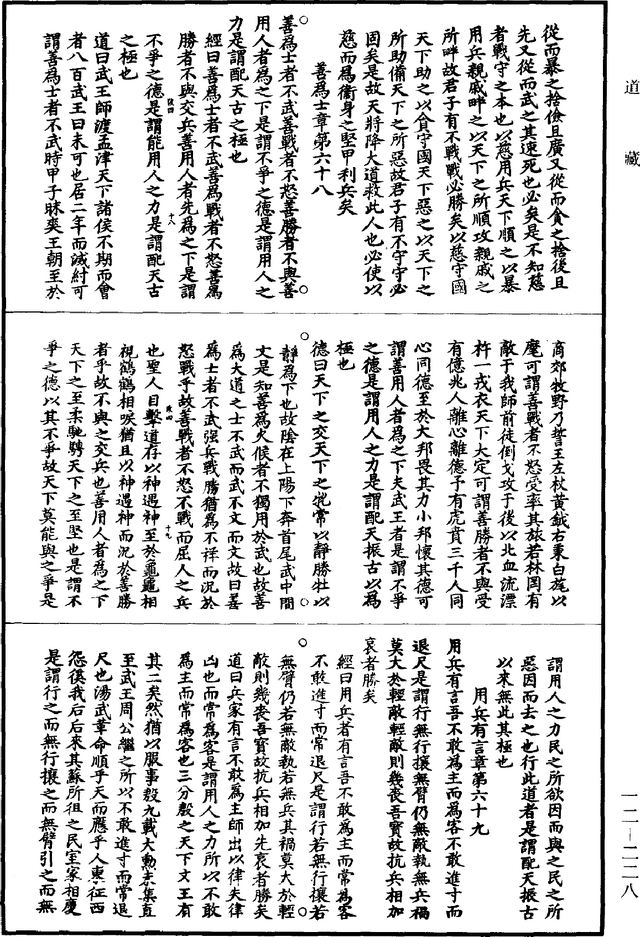 道藏
從而暴之捨儉且廣又從而貪之捨後且
先又從而武之其速死也必矣是不知慈
者戰守之本也以慈用兵天下順之以暴
用兵親戚畔之以天下之所順攻親戚之
所畔故君子有不戰戰必勝矣以慈守國
天下助之以貪守國天下惡之以天下之
所助備天下之所惡故君子有不守守必
固矣是故天將降大道救此人也必使以
慈而為衛身之堅甲利兵矣
善為士章第六十八
善為士者不武善戰者不怒善勝者不與善
用人者為之下是謂不爭之德是謂用人之
力是謂配天古之極也
經曰善為士者不武善為戰者不怒善為
勝者不與交兵善用人者先為之下是謂
不爭之德是謂能用人之力是謂配天古
之極也
道曰武王師渡孟津天下諸侯不期而會
者八百武王曰未可也居二年而滅紂可
謂善為士者不武時甲子昧爽王朝至於
商郊牧野乃誓王左杖黃鉞右秉白旄以
麾可謂善戰者不怒受率其旅若林罔有
敵于我師前徒倒戈攻于後以北血流漂
杵一戎衣天下大定可謂善勝者不與受
有億兆人離心離德予有虎賁三千人同
心同德至於大邦畏其力小邦懷其德可
謂善用人者為之下夫武王者是謂不爭
之德是謂用人之力是謂配天振古以為
極也
德曰天下之交天下之牝常以靜勝牡以
靜為下也故陰在上陽下奔首尾武中間
文是知善為火候者不獨用於武也故善
為大道之士不武而武不文而文故曰善
為士者不武強兵戰勝猶為不祥而況於
怒戰乎故善戰者不怒不戰而屈人之兵
也聖人目擊道存以神遇神至於龜龜相
視鶴鶴相唳猶且以神遇神而況於善勝
者乎故不與之交兵也善用人者為之下
天下之至柔馳騁天下之至堅也是謂不
爭之德以其不爭故天下莫能與之爭是
謂用人之力民之所欲因而與之民之所
惡因而去之也行此道者是謂配天振古
以來無此其極也
用兵有言章第六十九
用兵有言吾不敢為主而為客不敢進寸而
退尺是謂行無行攘無臂仍無敵執無兵禍
莫大於輕敵輕敵則幾喪吾寶故抗兵相加
哀者勝矣
經曰用兵者有言吾不敢為主而常為客
不敢進寸而常退尺是謂行若無行攘若
無臂仍若無敵執若無兵其禍莫大於輕
敵則幾喪吾寶故抗兵相加先哀者勝矣
道曰兵家有言不敢為主師出以律失律
凶也而常為客是謂用人之力所以不敢
為主而常為客也三分殷之天下文王有
其二矣然猶以服事殷九載大勳未集直
至武王周公繼之所以不敢進寸而常退
尺也湯武革命順乎天而應乎人東征西
怨徯我后后來其蘇所徂之民室家相慶
是謂行之而無行攘之而無臂引之而無
一二—二二八